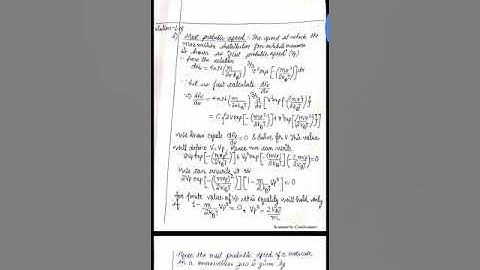 Solution-2 (i)
Most probable speed:- The speed at which the
Maxwellian distribution
is known as "most probable speed" (Vp)
from the relation
dNv = 4πN (m/2πkBT)^3/2 v² exp[-(mv²/2kBT)] dv
let us first calculate dNv/dv
⇒ dNv/dv = 4πN (m/2πkBT)^3/2 d/dv [v² exp{-(mv²/2kBT)}]
= C {2v exp[-(mv²/2kBT)] + v² exp[-(mv²/2kBT)]
we know equate dNv/dv = 0 & solve for v. This value
will define V = Vp, Hence we can write
2Vp exp[-(mVp²/2kBT)] + Vp² exp[-(mVp²/2kBT)] (-2mVp/2kBT) = 0
we can rewrite it as
2Vp exp[-(mVp²/2kBT)] [1 - m/2kBT Vp²] = 0
for finite value of Vp, this equality will hold only
if 1 - m/2kBT Vp² = 0, Vp² = 2kBT/m
Scanned by CamScanner
Hence the most probable speed of a molecule
in a maxwellian gas is given by